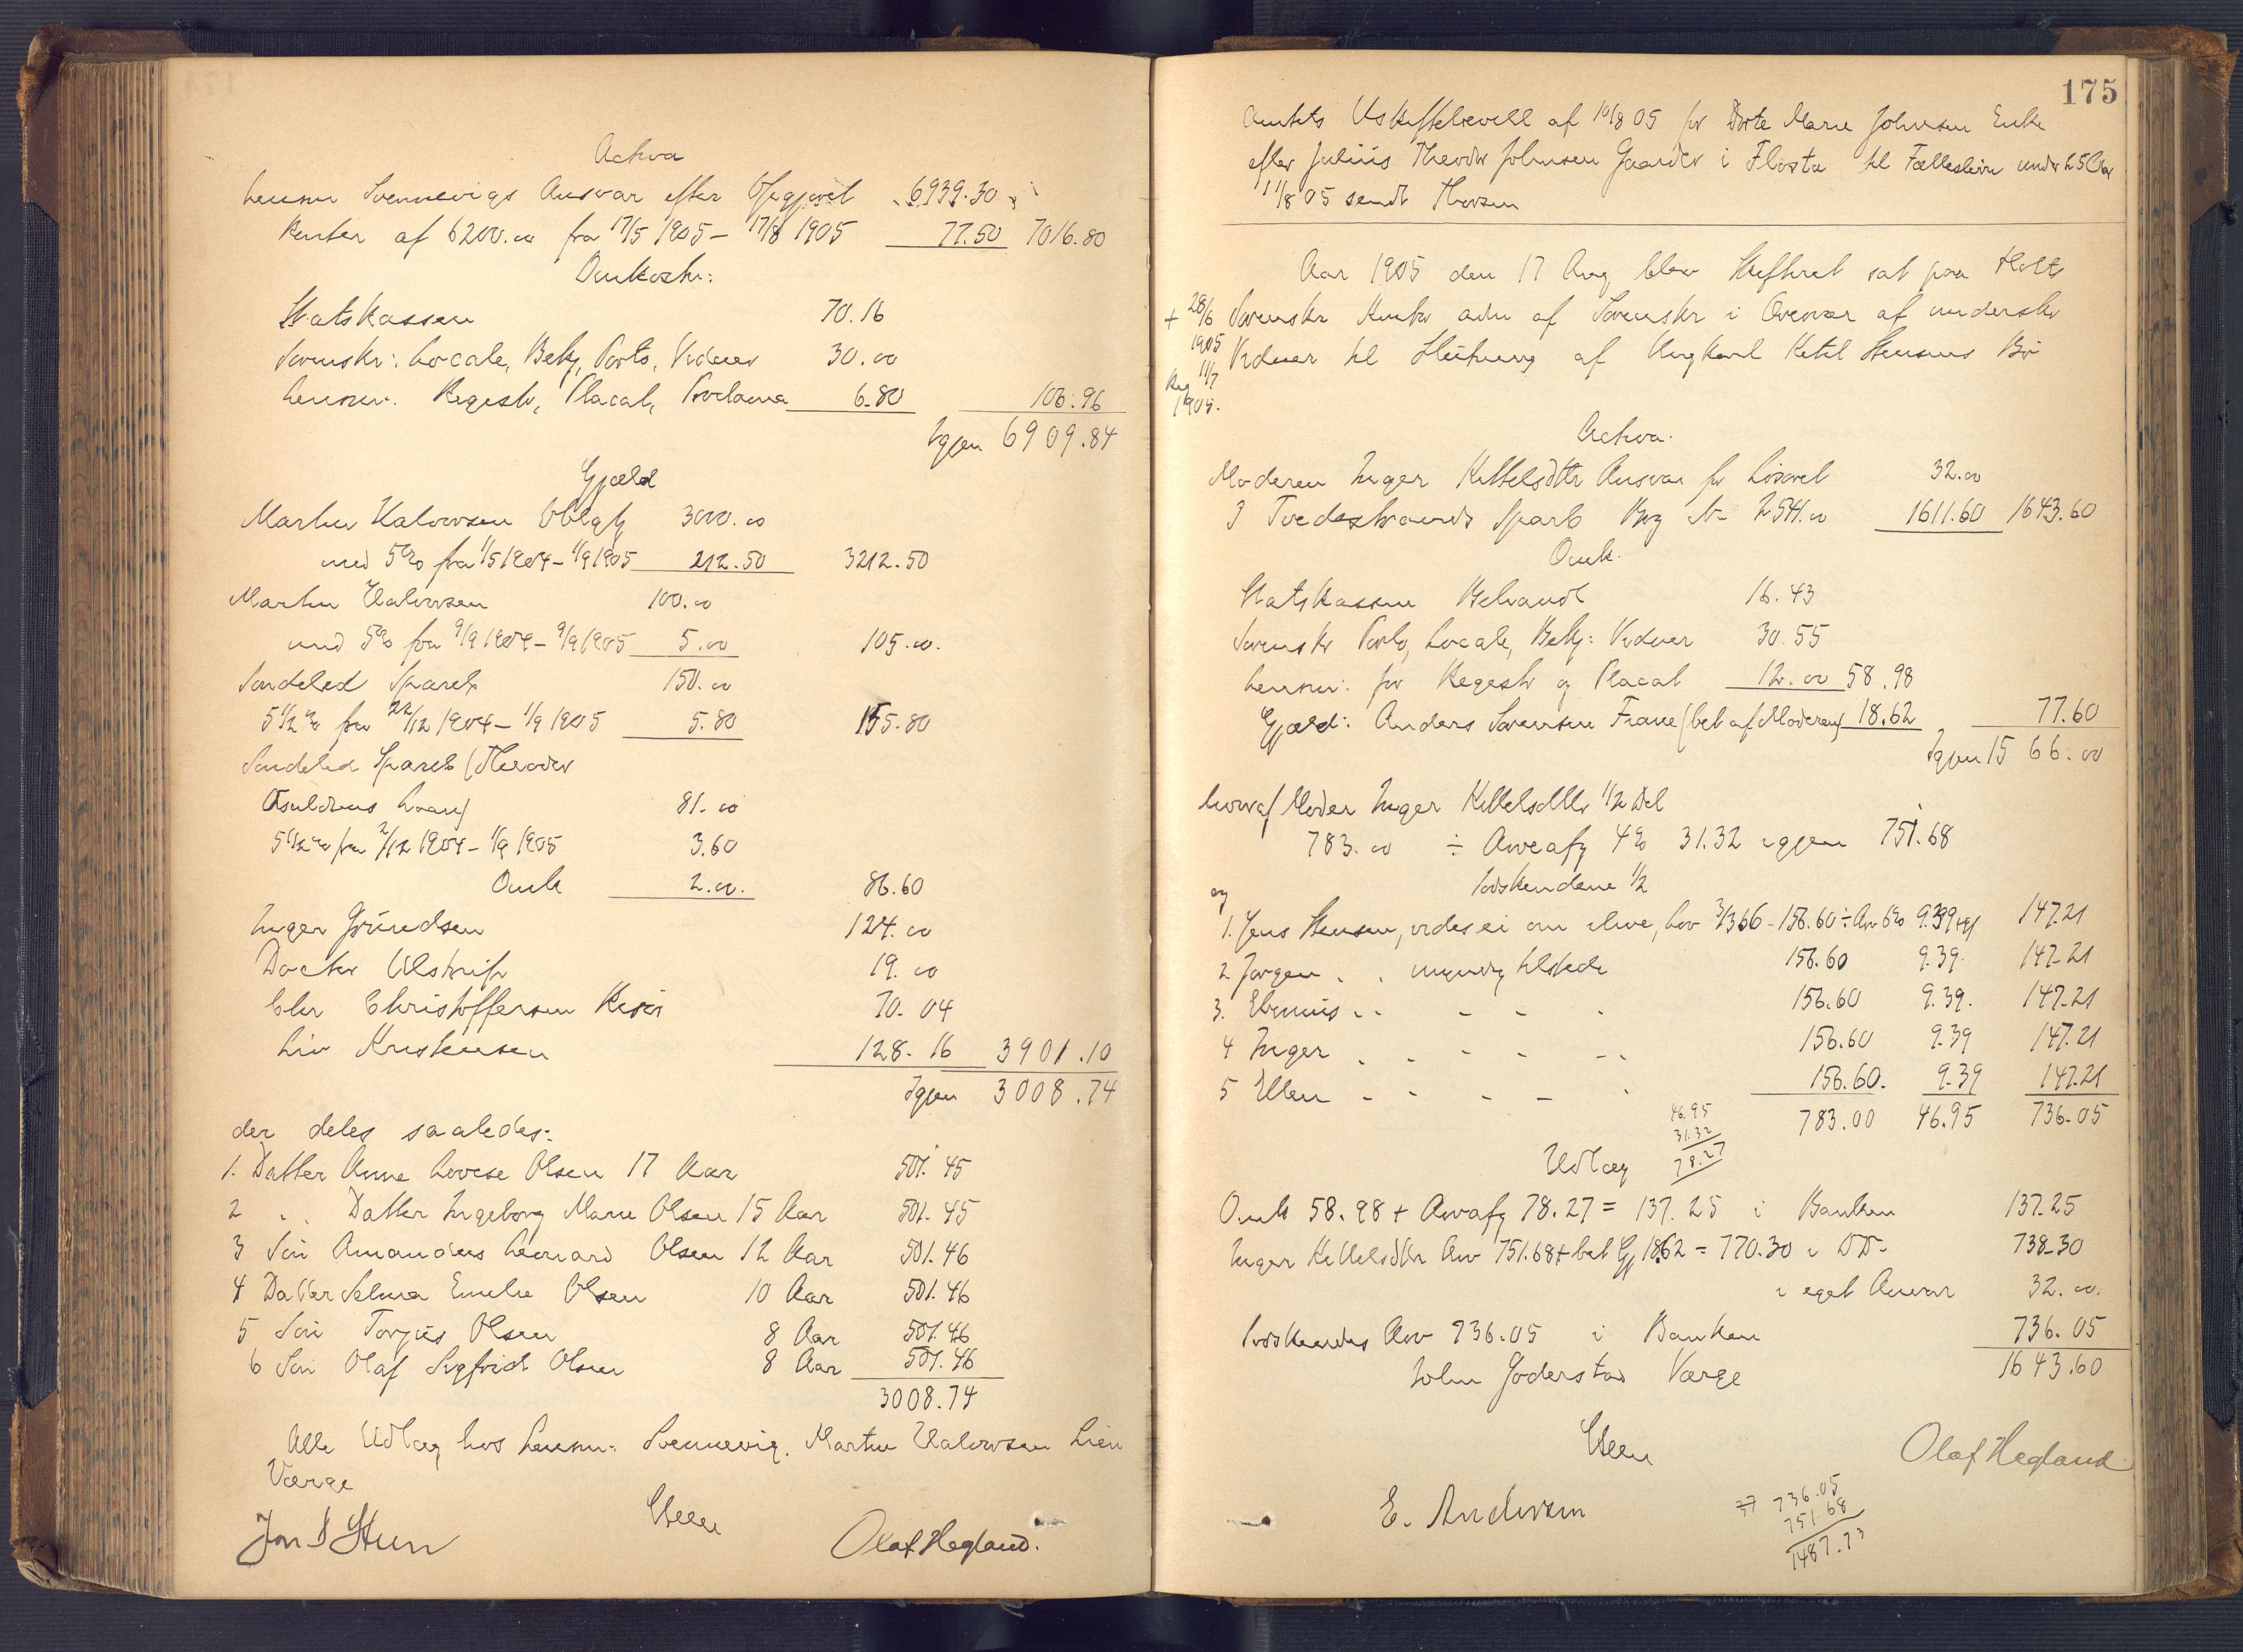 Activa
Lensm Svennevigs Ansvar efter Opgjøret 6939.30
Renter af 6200.00 fra 17/5 1905 – 17/8 1905 77.50 7016.80
Omkostn:
Statskassen 70.16
Sorenskr: Locale, Bekj, Porto, Vidner 30.00
Lensm: Registr, Placat, Proclama 6.80 106.96
Igjen 6909.84
Gjæld
Martin Halvorsen Obligtj 3000.00
med 5% fra 1/5 1904 – 1/9 1905 212.50 3212.50
Martin Halvorsen 100.00
med 5% fra 9/9 1904 – 9/9 1905 5.00 105.00.
Søndeled Spareb 150.00
5 1/2 % fra 22/12 1904 – 1/9 1905 5.80 155.80
Søndeled Spareb (Theodor
Osuldsens Laan) 81.00
5 1/2 % fra 2/12 1904 – 1/9 1905 3.60
Omk 2.00. 86.60
Inger Gründsen 124.00
Docter Ulstrup 19.00
Chr Christoffersen Risør 70.04
Liv Kristensen 128.16 3901.10
Igjen 3008.74
der deles saaledes:
1. Datter Anne Lovise Olsen 17 Aar 501.45
2 . . Datter Ingeborg Marie Olsen 15 Aar 501.45
3 Søn Amandus Leonard Olsen 12 Aar 501.46
4 Datter Selma Emelie Olsen 10 Aar 501.46
5 Søn Torjus Olsen 8 Aar 501.46
6 Søn Olaf Sigfrid Olsen 8 Aar 501.46
3008.74
Alle Udlæg hos Lensm: Svennevig. Martin Halvorsen Lien
Værge
Steen
Jon D Stun Olaf Hegland.
175
Amtets Uskiftebevill af 10/8 05 for Dorte Marie Johnsen Enke
efter Julius Theodor Johnsen Gaarder i Flosta til Fællesbørn under 25 Aar
11/8 05 sendt Thorsen
Aar 1905 den 17 Aug blev Skifteret sat paa Holts
+ 28/6 Sorenskr Kontor adm af Sorenskr i Overvær af underskr
1905 Vidner til Slutning af Ungkarl Ketil Stensens Bo
Reg 11/7
1905.
Activa.
Moderen Inger Kittelsdtr Ansvar for Løsøret 32.00
I Tvedestrands Spareb Bog No 2541.00 1611.60 1643.60
Omk.
Statskassen Behandl 16.43
Sorenskr Porto, Locale, Bekj: Vidner 30.55
Lensm: for Registr og Placat 12.00 58.98
Gjæld: Anders Sørensen Frane (bet af Moderen) 18.62 77.60
Igjen 1566.00
hvoraf Moder Inger Kittelsdtr 1/2 Del
783.00 ÷ Arveafg 4% 31.32 igjen 751.68
og Sødskendene 1/2
1. Jens Stensen, vides ei om ilive, 156.60 ÷ Arv 6% 9.39 147.21
2 Jørgen . . myndig tilstede 156.60 9.39. 147.21
3. . . - - . 156.60 9.39. 147.21
4 Inger . . - - - . 156.60 9.39 147.21
5 Ellen - - - - . 156.60. 9.39 147.21
783.00 46.95 736.05
46.95
31.32
78.27
Udlæg
Omk 58.98 + Arvafg 78.27 = 137.25 i Banken 137.25
Inger Kittelsdtr Arv 751.68 + bet Gj 18.62 = 770.30 i Do 738.30
i eget Ansvar 32.00.
Sødskendes Arv 736.05 i Banken 736.05
1643.60
John Goderstad Værge
Steen
Olaf Hegland
E. Andersen
37 736.05
751.68
1487.73